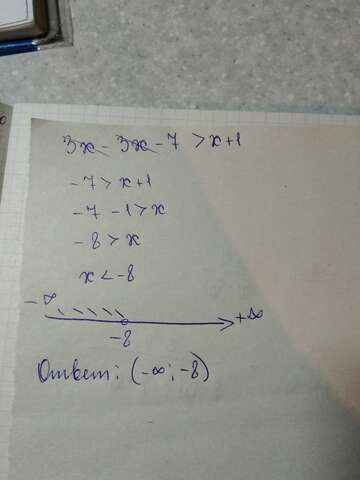 3x - 3x - 7 > x+1
-7 > x+1
-7 -1 > x
-8 > x
x < -8
-∞ +∞
-8
Ответ: (-∞; -8)